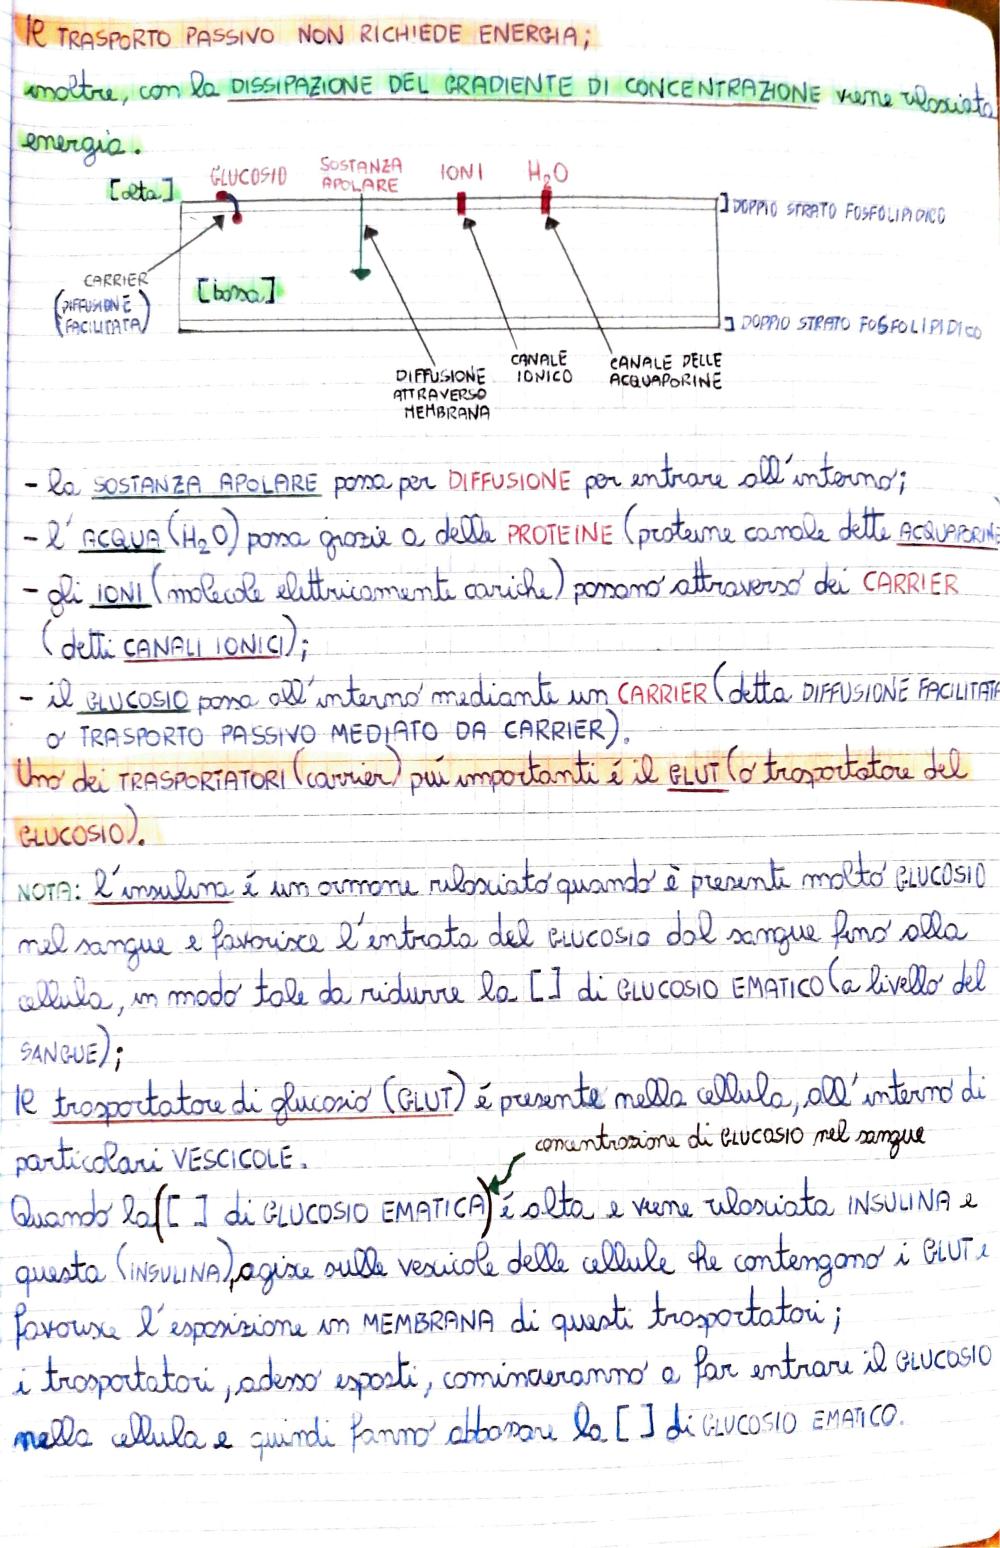 Il TRASPORTO PASSIVO NON RICHIEDE ENERGIA;
inoltre, con la DISSIPAZIONE DEL GRADIENTE DI CONCENTRAZIONE viene rilasciata
energia.
[alta] GLUCOSIO SOSTANZA APOLARE IONI H₂O
] DOPPIO STRATO FOSFOLIPIDICO
CARRIER
(DIFFUSIONE
FACILITATA)
[bassa]
] DOPPIO STRATO FOSFOLIPIDICO
DIFFUSIONE
ATTRAVERSO
MEMBRANA
CANALE
IONICO
CANALE DELLE
ACQUAPORINE
- la SOSTANZA APOLARE passa per DIFFUSIONE per entrare all'interno;
- l'ACQUA (H₂O) passa grazie a delle PROTEINE (proteine canale dette ACQUAPORINE
- gli IONI (molecole elettricamente cariche) passano attraverso dei CARRIER
(detti CANALI IONICI);
- il GLUCOSIO passa all'interno mediante un CARRIER (detta DIFFUSIONE FACILITATA
o TRASPORTO PASSIVO MEDIATO DA CARRIER).
Uno dei TRASPORTATORI (carrier) più importanti é il GLUT (o trasportatore del
GLUCOSIO).
NOTA: l'insulina é un ormone rilasciato quando è presente molto GLUCOSIO
nel sangue e favorisce l'entrata del GLUCOSIO dal sangue fino alla
cellula, in modo tale da ridurre la [ ] di GLUCOSIO EMATICO (a livello del
SANGUE);
Il trasportatore di glucosio (GLUT) é presente nella cellula, all'interno di
particolari VESCICOLE.
concentrazione di GLUCOSIO nel sangue
Quando la ([ ] di GLUCOSIO EMATICA) é alta e viene rilasciata INSULINA e
questa (INSULINA), agisce sulle vescicole delle cellule che contengono i GLUT e
favorisce l'esposizione in MEMBRANA di questi trasportatori;
i trasportatori, adesso esposti, cominceranno a far entrare il GLUCOSIO
nella cellula e quindi fanno abbassare la [ ] di GLUCOSIO EMATICO.